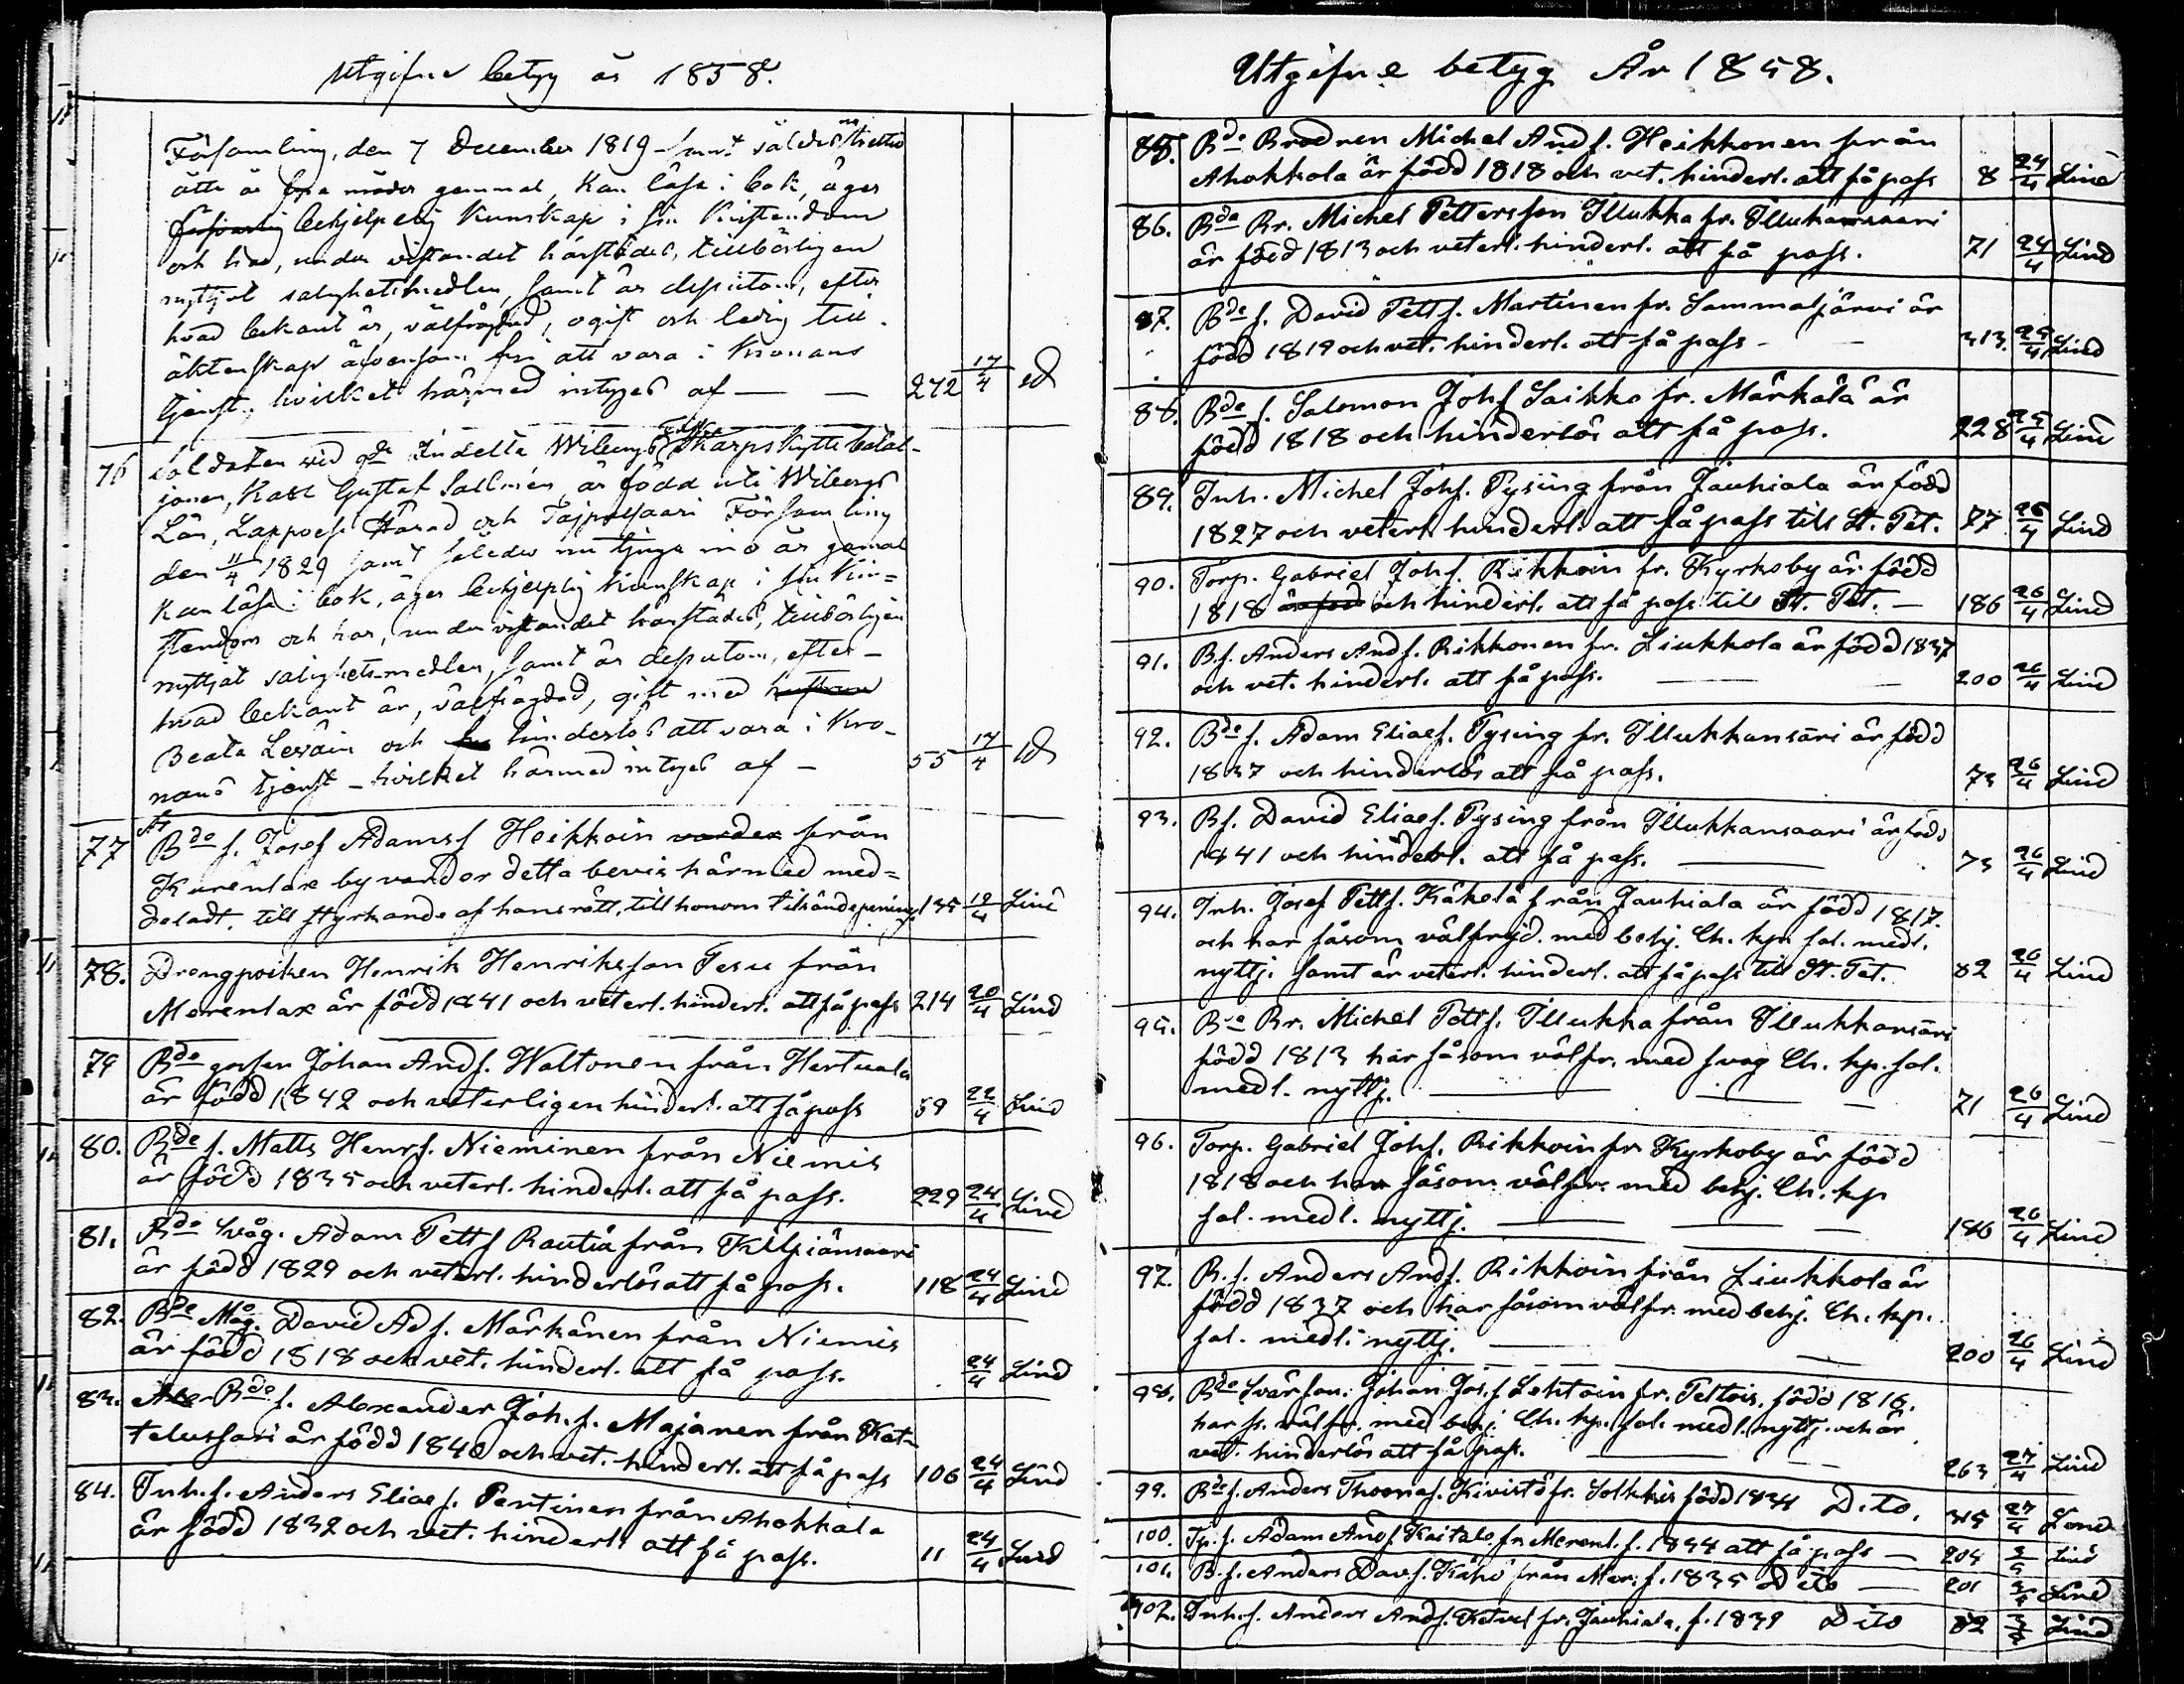 Utgifne betyg år 1858.
Församling, den 7 December 1819 samt således trettio
åtta år gammal, kan läsa i bok, äger
försvarlig behjelpelig kunskap i sin Kristendom
och har, under vistandet härstädes, tillbörligen
nyttjat salighetsmedlen, samt är dessutom, efter
hvad bekant är, välfrägdad, ogift och ledig till
äktenskap äfvensom fri att vara i Kronans
tjenst, hvilket härmed intygas af — — 272 17/4
76 Soldaten vid Indelta Wiborgs Skarpskytte batal-
jonen, Karl Gustaf Sallmén, är född uti Wiborgs
Län, Lappvesi Härad och Taipalsaari Församling
den 11/4 1829 samt således nu tjuge nio år gamal
Kan läsa i bok, äger behjelplig kunskap i sin Kri=
stendom och har, under vistandet härstädes, tillbörligen
nyttjat salighetsmedlen, samt är dessutom, efter
hvad bekant är, välfrägdad, gift med hustrun
Beata Leväin och hinderlös att vara i Kro-
nans tjenst - hvilket härmed intygas af - 55 17/4
77 Bde s. Josef Adamsf Heikkoin varder från
Kurenlax by varder detta bevis härmed med=
deladt, till styrkande af hans rätt, till honom tillsände penningar 135 19/4 Lind
78. Drengpoiken Henrik Henriksson Tesu från
Merenlax är född 1841 och veterl. hinderl. att få pass 214 20/4 Lind
79 Bde gossen Johan Andf. Waltonen från Hertuala
är född 1842 och veterligen hinderl. att få pass 59 22/4 Lind
80. Bde s. Matts Henrf. Nieminen från Niemis
är född 1835 och veterl. hinderl. att få pass. 229 24/4 Lind
81. Bde Svåg. Adam Pettf Rautia från Kilpiänsaari
är född 1829 och veterl. hinderlös att få pass. 118 24/4 Lind
82. Bde Måg. David Adf. Märkänen från Niemis
är född 1818 och vet. hinderl. att få pass. 24/4 Lind
83. Bde s. Alexander Joh. f. Majanen från Kat-
telussari är född 1840 och vet. hinderl. att få pass 106 24/4 Lind
84. Inh. s. Anders Eliasf. Pentinen från Ahokkala
är född 1832 och vet. hinderl. att få pass. 11 24/4 Lind
Utgifne betyg År 1858.
85. Bde Brodren Michel Andf. Heikkonen från
Ahokkala är född 1818 och vet. hinderl. att få pass 8 24/4 Lind
86. Bde Br. Michel Pettersson Illukka fr. Illukansaari
är född 1813 och veterl. hinderl. att få pass. 71 24/4 Lind
87. Bde s. David Pettf. Martinen fr. Sammaljärvi är
född 1819 och vet. hinderl. att få pass - 313 25/4 Lind
88. Bde s. Salomon Johf Saikko fr. Märkälä är
född 1818 och hinderlös att få pass. 228 25/4 Lind
89. Inh. Michel Johf. Pysing från Jauhiala är född
1827 och veterl. hinderl. att få pass till St. Pet. 77 26/4 Lind
90. Torp. Gabriel Johf. Rikkoin fr. Kyrkoby är född
1818 är född och hinderl. att få pass till St. Pet. — 186 26/4 Lind
91. B.s. Anders Andf. Rikkonen fr. Liukkola är född 1837
och vet. hinderl. att få pass. — — 200 26/4 Lind
92. Bde s. Adam Eliasf. Pysing fr. Illukkansari är född
1837 och hinderlös att få pass. 73 26/4 Lind
93. Bs. David Eliasf. Pysing från Illukkansaari är född
1841 och hinderl. att få pass. — 73 26/4 Lind
94. Inh. Josef Pettf. Käkelä från Jauhiala är född 1817.
och har såsom välfrejd. med behj. Ch. kp sal. medl.
nyttj. samt är veterl. hinderl. att få pass till St. Pet. 82 26/4 Lind
95. Bde Br. Michel Pettf. Illukka från Illukkansari
född 1813 har såsom välfr. med svag Ch. kp. sal.
medl. nyttj. — — — 71 26/4 Lind
96. Torp. Gabriel Johf. Rikkoin fr Kyrkoby är född
1818 och har såsom välfr. med behj. Ch. kp
sal. medl. nyttj. — — — 186 26/4 Lind
97. B.s. Anders Andf. Rikkoin från Liukkola är
född 1837 och har såsom välfr. med behj. Ch. kp.
sal. medl. nyttj. — — 200 26/4 Lind
98. Bde Svärson. Johan Josf Lehtoin fr. Pettois, född 1816.
har ss. välfr. med behj. Ch. kp. sal. medl. nyttj. och är
vet. hinderlös att få pass. — — 263 27/4 Lind
99. Bde s. Anders Thomasf. Kivistö fr. Solkkis född 1834 Dito, 315 27/4 Lind
100. Tp. s. Adam Andf. Kaitalo fr Merenl. f. 1844 att få pass — 204 Lind
101. B.s. Anders Davf. Kähö från Mer. f. 1835 Dito — 201 Lind
102. Inh. s. Anders Andf. Ketvel fr. Jauhiala, f. 1839 Dito 82 Lind